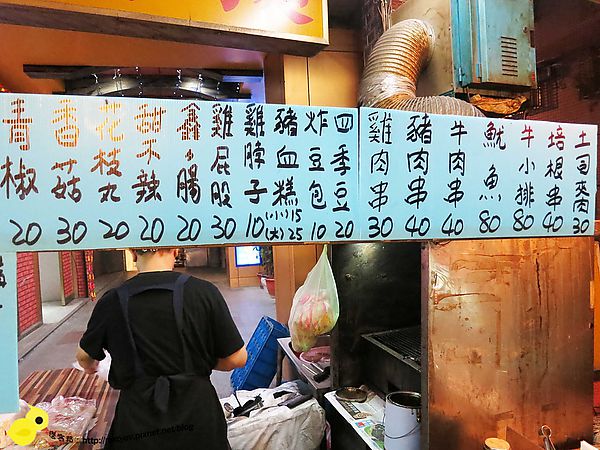 青椒 20
香菇 30
花枝丸 20
甜不辣 20
鑫鑫腸 20
雞屁股 30
雞脖子 10
豬血糕 (小)15 (大)25
炸豆包 10
四季豆 20
雞肉串 30
豬肉串 40
牛肉串 40
魷魚 80
牛小排 80
培根串 40
土司夾肉 30